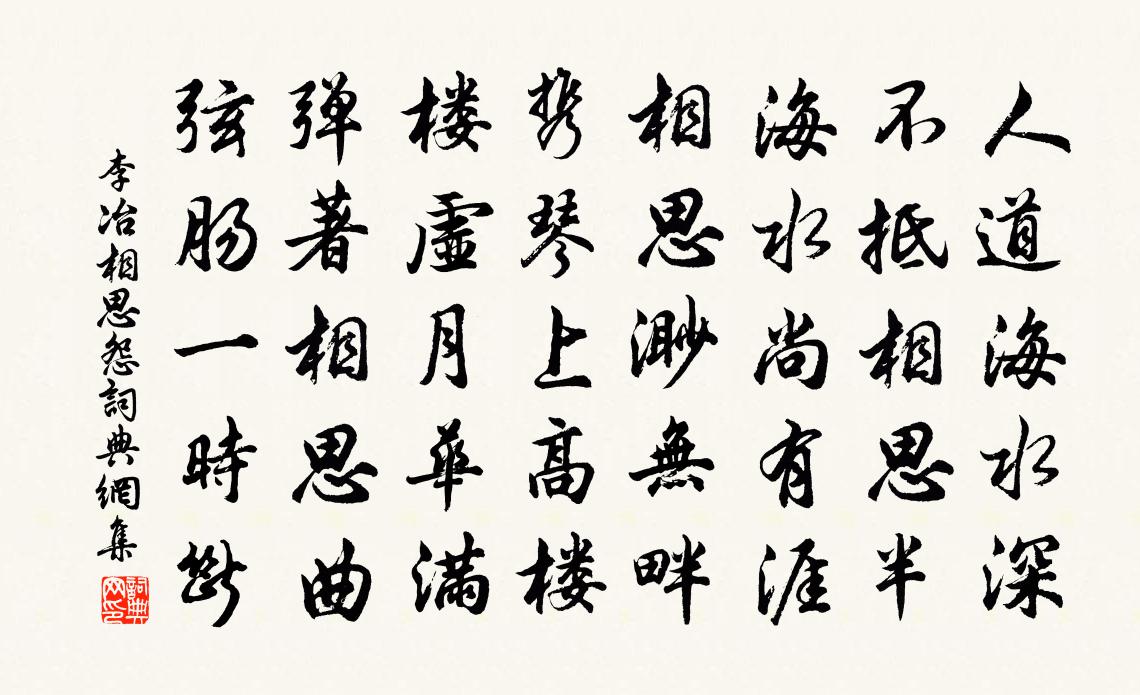 人道海水深
不抵相思半
海水尚有涯
相思渺無畔
携琴上高楼
楼虚月華满
弾著相思曲
弦肠一時断
李冶相思怨詞典網集
詞典网印